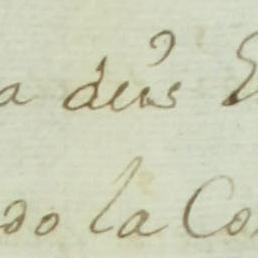 a deus
do la Co